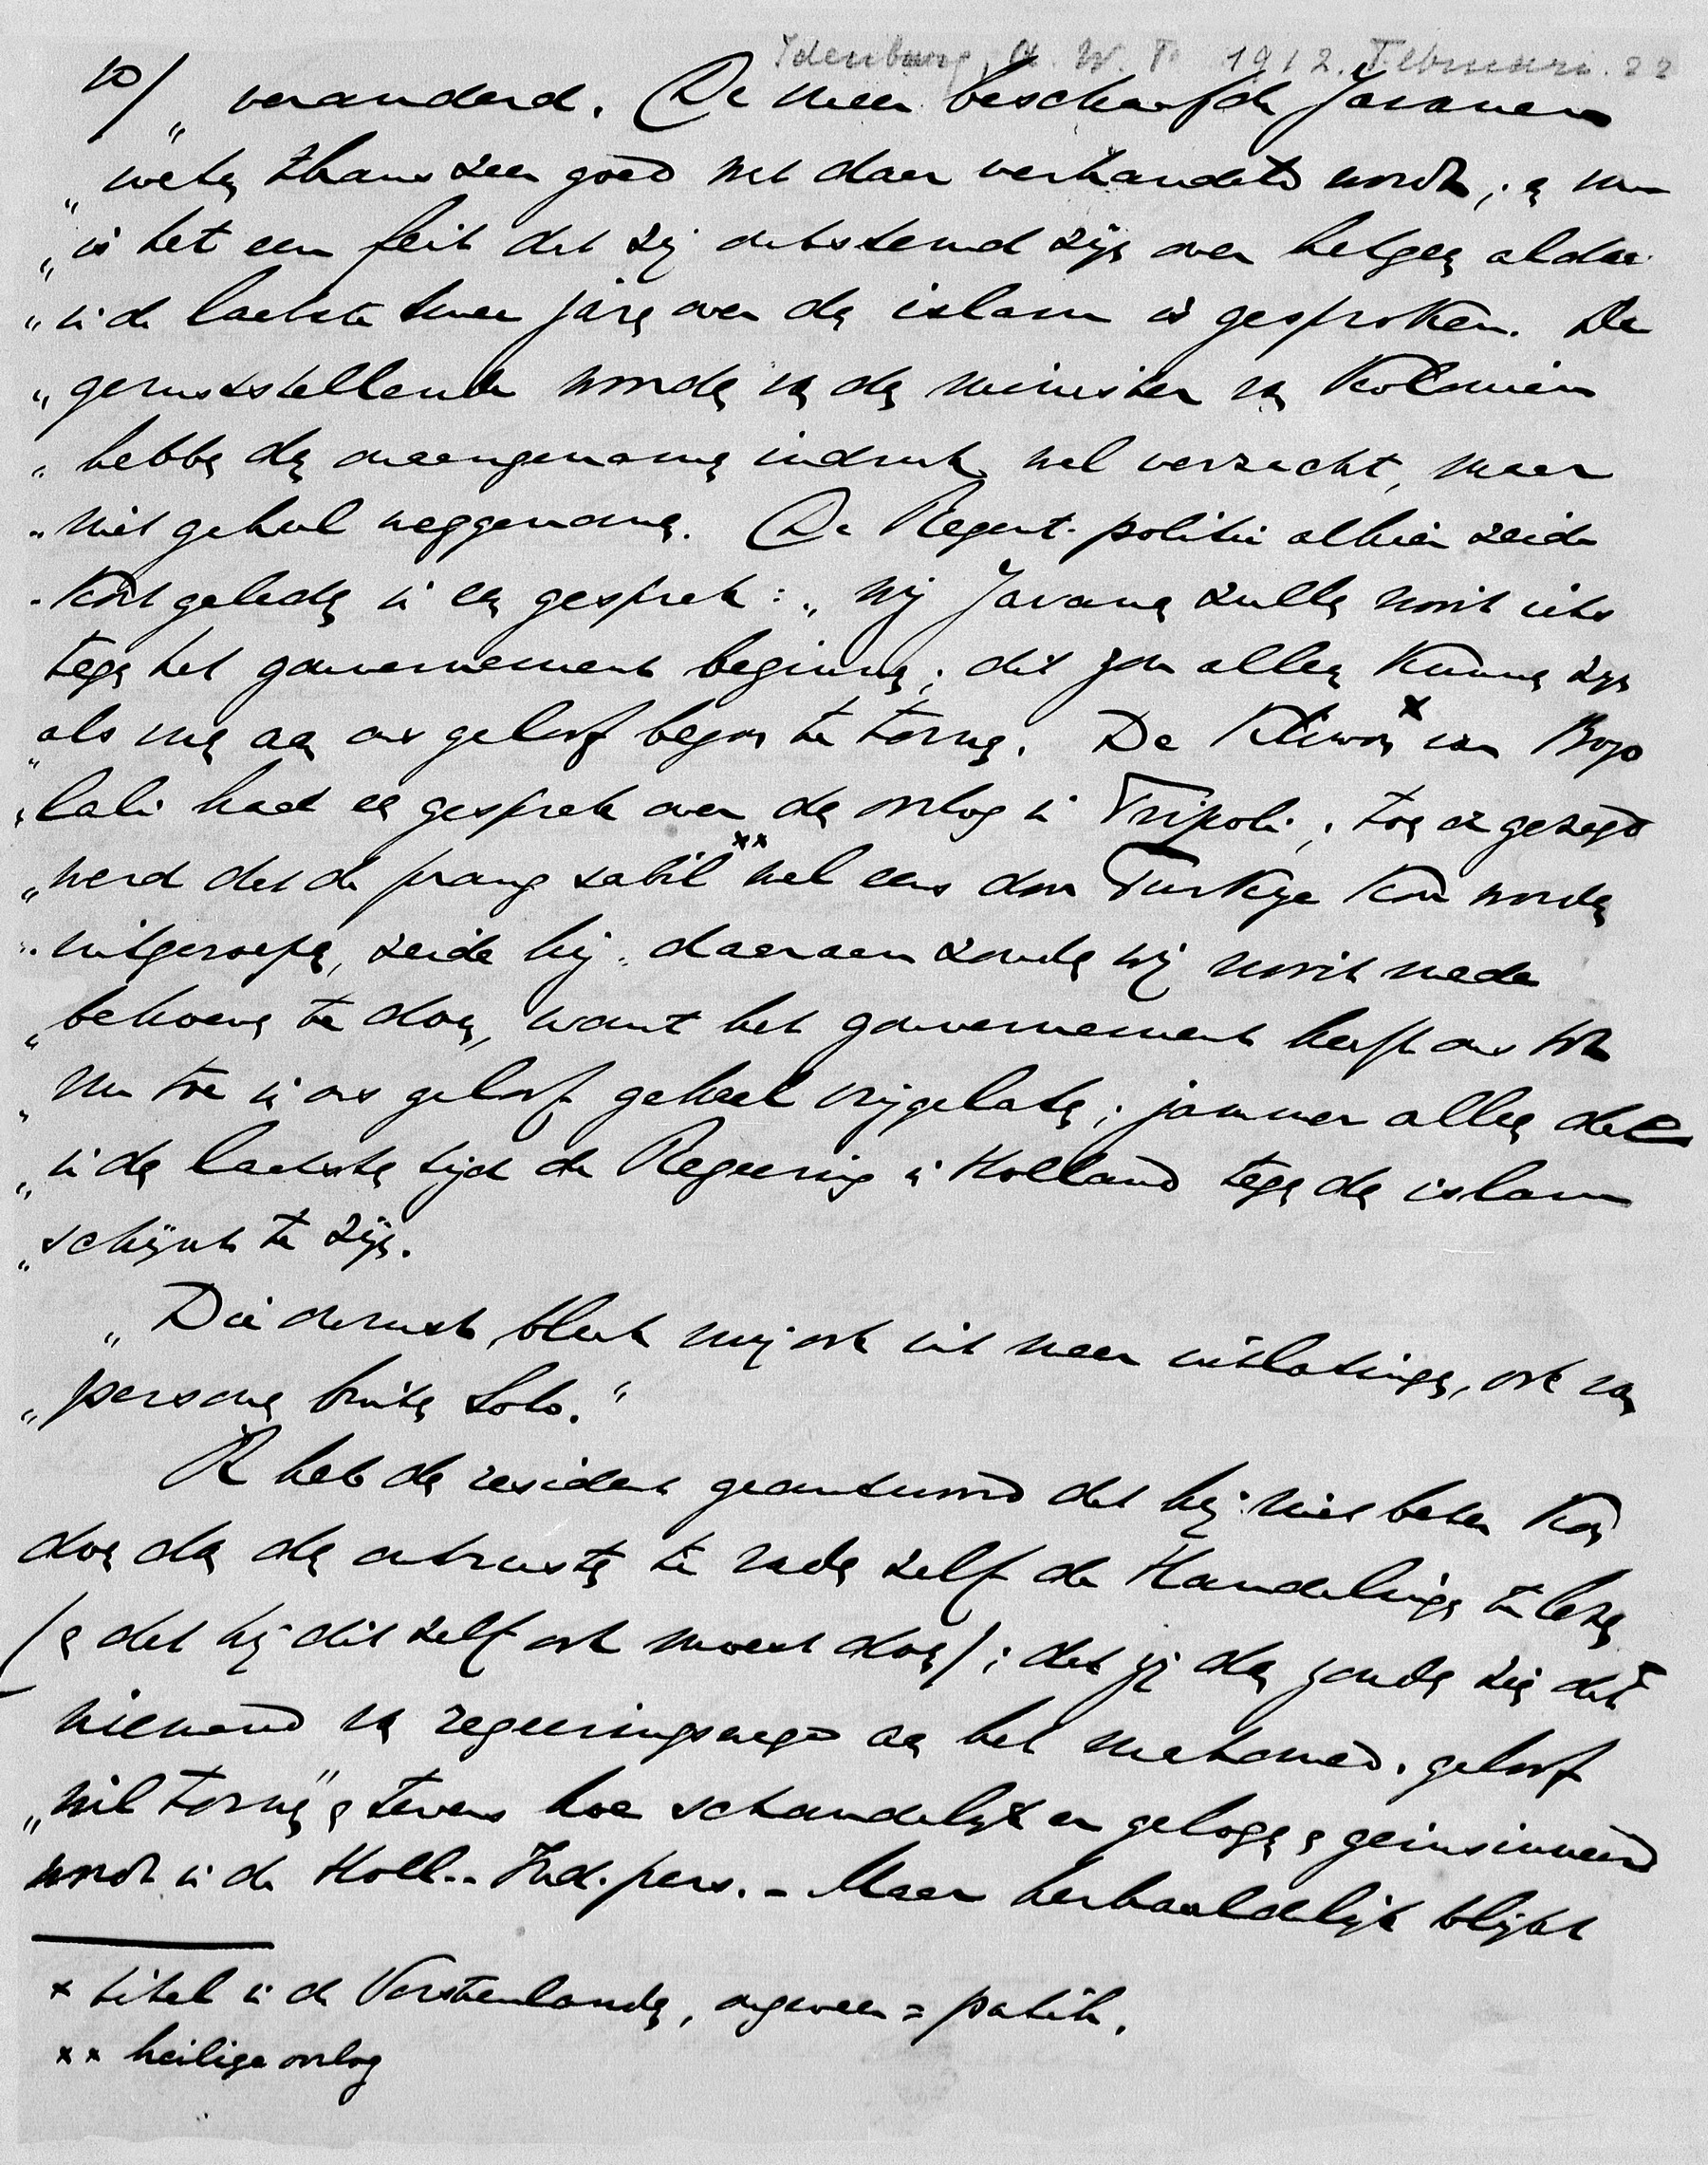 Idenburg, A. W. F. 1912. Februari. 22
10/ „veranderd. De meer beschaafde Javanen
„weten thans zeer goed wat daar verhandeld wordt; en nu
„is het een feit dat zij ontstemd zijn over hetgeen aldaar
„in de laatste twee jaren over den islam is gesproken. De
„geruststellende woorden van den minister van Koloniën
„hebben den onaangenamen indruk wel verzacht, maar
„niet geheel weggenomen. De Regent-politie alhier zeide
„kort geleden in een gesprek: „wij Javanen zullen nooit iets
tegen het gouvernement beginnen; dit zou alleen kunnen zijn
„als men aan ons geloof begon te tornen. De Kliwon x van Bojo
„lali had een gesprek over den oorlog in Tripoli; toen er gezegd
„werd dat de prang sabil xx wel eens door Turkije kon worden
„uitgeroepen, zeide hij: daaraan zouden wij nooit mede
„behoeven te doen, want het gouvernement heeft ons tot
„nu toe in ons geloof geheel vrijgelaten; jammer alleen dat
„in den laatsten tijd de Regeering in Holland tegen den islam
„schijnt te zijn.
„Die onrust bleek mij ook uit meer uitlatingen, ook van
„personen buiten Solo."
Ik heb den resident geantwoord dat hij niet beter kon
doen dan den ontrusten te raden zelf de Handelingen te lezen
(en dat hij dit zelf ook moest doen); dat zij dan zouden zien dat
niemand van regeeringswege aan het mahomed. geloof
„wil tornen" en tevens hoe schandelijk er gelogen en geinsinueerd
wordt in de Holl.-Ind. pers. - Maar herhaaldelijk blijkt
x titel in de Vorstenlanden, ongeveer = patih.
xx heilige oorlog